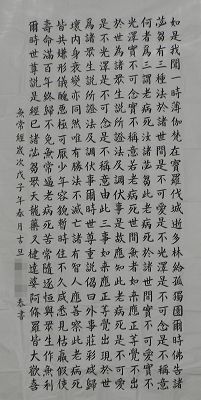 如是我聞一時薄伽梵在室羅伐城逝多林給孤獨園爾時佛告諸
苾芻有三種法於諸世間是不可愛是不光澤是不可念是不稱意
何者為三謂老病死汝諸苾芻此老病死於諸世間實不可愛實不
光澤實不可念實不稱意若老病死世間無者如來應正等覺不出
於世為諸眾生說所證法及調伏事是故應知此老病死是不可愛
是不光澤是不可念是不稱意由此三事如來應正等覺出現於世
為諸眾生說所證法及調伏事爾時世尊重說偈曰外事莊彩咸歸
壞內身衰變亦同然唯有勝法不滅亡諸有智人應善察此老病死
皆共嫌形儀醜惡極可厭少年容貌暫時住不久咸悉見枯羸假使
壽命滿百年終歸不免無常逼老病死苦常隨逐恒與眾生作無利
爾時世尊說是經已諸苾芻眾天龍藥叉揵達婆阿修羅皆大歡喜
無常經歲次戊子年春月吉旦 春書